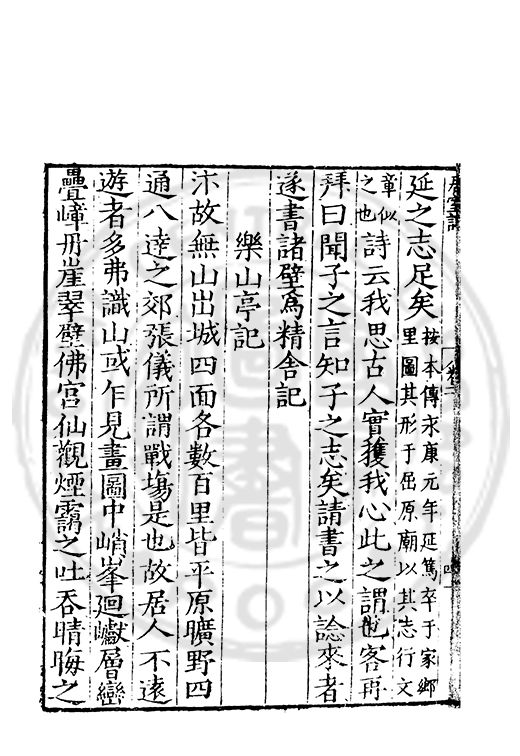 延之志足矣按本傳永康元年延篤卒于家鄉
里圖其形于屈原廟以其志行文
章似
之也詩云我思古人實獲我心此之謂也客再
拜曰聞子之言知子之志矣請書之以諗來者
遂書諸壁為精舍記
樂山亭記
汴故無山出城四面各數百里皆平原曠野四
通八達之郊張儀所謂戰場是也故居人不遠
遊者多弗識山或乍見畫圖中峭峯迴巘層巒
疊嶂丹崖翠壁佛宮仙觀煙靄之吐吞晴晦之